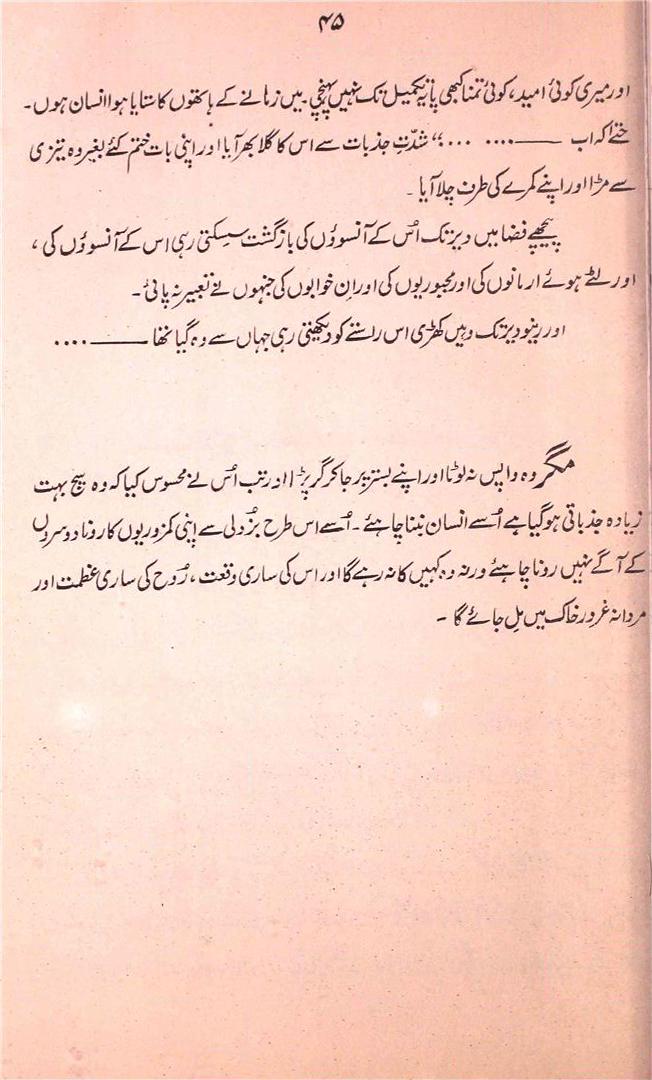 ۴۵
اور میری کوئی امید، کوئی تمنا کبھی پایۂ تکمیل تک نہیں پہنچی۔ میں زمانے کے ہاتھوں کا ستایا ہوا انسان ہوں۔
حتےٰ کہ اب ——— .... ...“ شدّتِ جذبات سے اس کا گلا بھر آیا اور اپنی بات ختم کئے بغیر وہ تیزی
سے مڑا اور اپنے کمرے کی طرف چلا آیا۔
پیچھے فضا میں دیر تک اُس کے آنسوؤں کی بازگشت سِسکتی رہی اس کے آنسوؤں کی،
اور لٹے ہوئے ارمانوں کی اور مجبوریوں کی اور اِن خوابوں کی جنہوں نے تعبیر نہ پائی۔
اور رینو دیر تک وہیں کھڑی اس راستے کو دیکھتی رہی جہاں سے وہ گیا تھا ——— ....
مگر وہ واپس نہ لوٹا اور اپنے بستر پر جا کر گر پڑا اور تب اُس نے محسوس کیا کہ وہ سچ بہت
زیادہ جذباتی ہو گیا ہے اُسے انسان بننا چاہئے۔ اُسے اس طرح بزُدلی سے اپنی کمزوریوں کا رونا دوسروں
کے آگے نہیں رونا چاہئے ورنہ وہ کہیں کا نہ رہے گا اور اس کی ساری وقعت، رُوح کی ساری عظمت اور
مردانہ غرور خاک میں مِل جائے گا۔